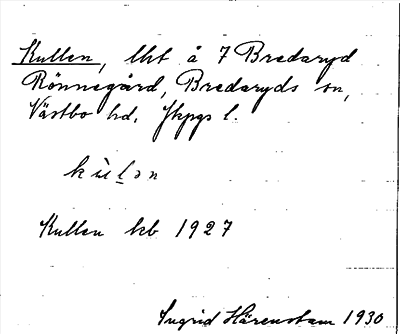 Kullen, lht å 7 Bredaryd
Rönnegård, Bredaryds sn,
Västbo hd. Jkpgs l.
kùlən
Kullen kb 1927
Ingrid Härenstam 1930